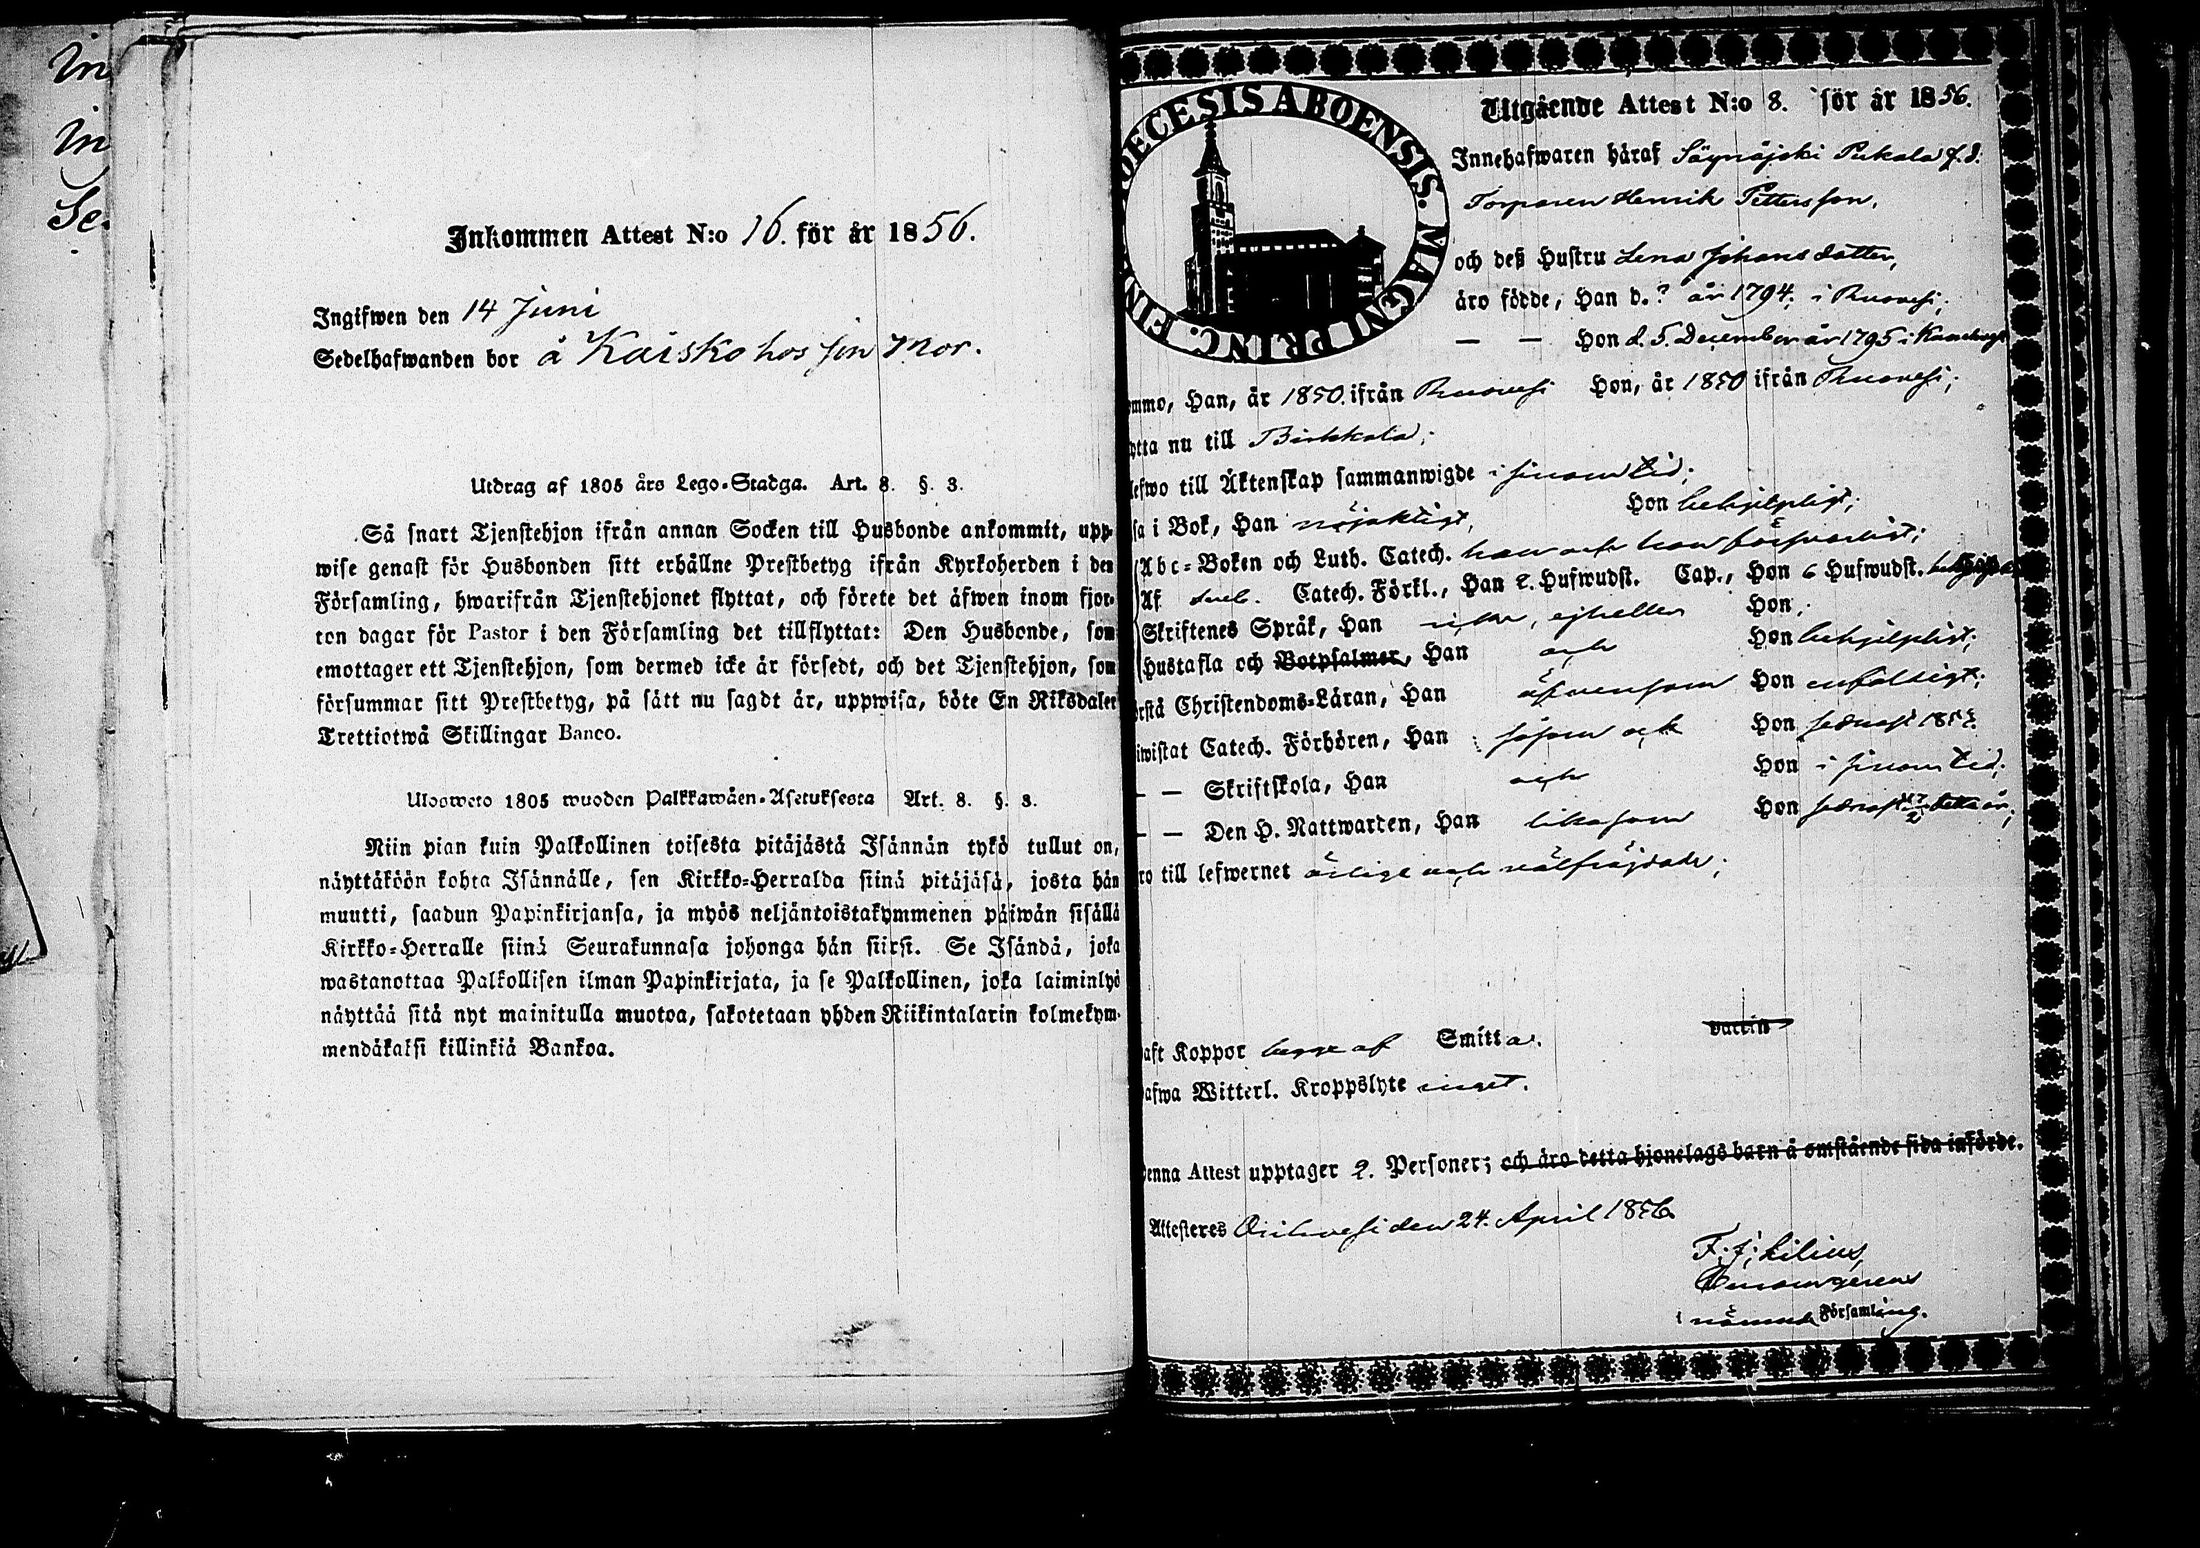 In
in
Se
Inkommen Attest N:o 16. för år 1856.
Ingifwen den 14 Juni
Sedelhafwanden bor å Kaisko hos sin Mor.
Utdrag af 1805 års Lego-Stadga. Art. 8. §. 3.
Så snart Tjenstehjon ifrån annan Socken till Husbonde ankommit, upp-
wise genast för Husbonden sitt erhållne Prestbetyg ifrån Kyrkoherden i den
Församling, hwarifrån Tjenstehjonet flyttat, och förete det äfwen inom fjor-
ton dagar för Pastor i den Församling det tillflyttat: Den Husbonde, som
emottager ett Tjenstehjon, som dermed icke är försedt, och det Tjenstehjon, som
försummar sitt Prestbetyg, på sätt nu sagdt är, uppwisa, böte En Riksdaler
Trettiotwå Skillingar Banco.
Ulosweto 1805 wuoden Palkkawäen-Asetuksesta Art. 8. §. 3.
Niin pian kuin Palkollinen toisesta pitäjästä Isännän tykö tullut on,
näyttäköön kohta Isännälle, sen Kirkko-Herralda siinä pitäjäsä, josta hän
muutti, saadun Papinkirjansa, ja myös neljäntoistakymmenen päiwän sisällä
Kirkko-Herralle siinä Seurakunnasa johonga hän siirsi. Se Isändä, joka
wastanottaa Palkollisen ilman Papinkirjata, ja se Palkollinen, joka laiminlyö
näyttää sitä nyt mainitulla muotoa, sakotetaan yhden Riikintalarin kolmekym-
mendäkaksi killinkiä Bankoa.
DIOECESIS ABOENSIS. MAGNI PRINC. FIN
Utgående Attest N:o 8. för år 1856.
Innehafwaren häraf Säynäjoki Pukala f.d.
Torparen Henrik Pettersson,
och deß Hustru Lena Johansdotter,
äro födde, Han d. ? år 1794. i Ruovesi;
— — Hon d. 5. December år 1795 i
ommo, Han, år 1850. ifrån Ruovesi Hon, år 1850 ifrån Ruovesi;
ytta nu till Birkkala;
lefwo till Äktenskap sammanwigde i sinom tid;
sa i Bok, Han nöjaktigt, Hon behjelpligt;
Abc-Boken och Luth. Catech. han och hon försvarligt;
Af Catech. Förkl., Han 2. Hufwudst. Cap., Hon 6 Hufwudst.
Skriftenes Språk, Han icke, ejheller Hon;
Hustafla och Botpsalmer, Han och Hon behjelpligt;
örstå Christendoms-Läran, Han äfvensom Hon enfaldigt;
iwistat Catech. Förhören, Han såsom ock Hon sednast
— — Skriftskola, Han och Hon i sinom tid;
— — Den H. Nattwarden, Han likasom Hon sednast detta år;
ro till lefwernet ärlige och välfräjdade;
aft Koppor begge af Smitta. vaccin
afwa Witterl. Kroppslyte inget.
Denna Attest upptager 2. Personer; och äro detta hjonelags barn å omstående sida införde.
Attesteres Orihvesi den 24. April 1856.
F. J. Lilius,
i nämnde Församling.